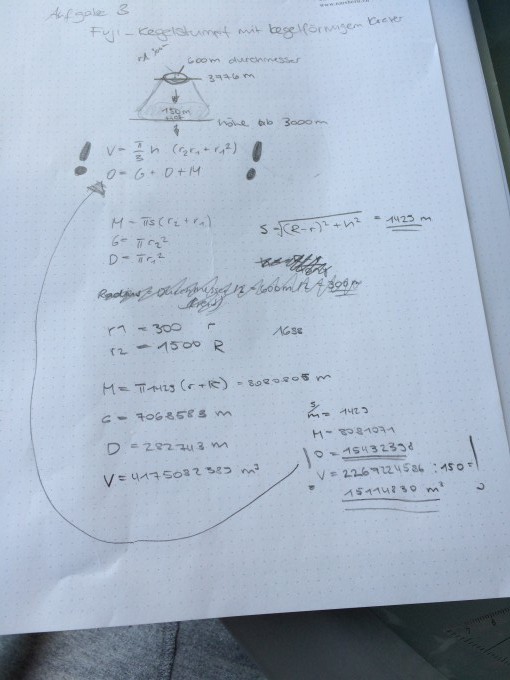 Aufgabe 3
Fuji - Kegelstumpf mit kegelförmigem Krater
600m durchmesser
3776 m
150m
Höhe ab 3000m
! V = π/3 h (r2r1 + r1²) !
O = G + D + M
M = πs(r2 + r1)
G = πr2²
D = πr1²
S = √(R-r)² + h² = 1429 m
r1 = 300 r
r2 = 1500 R
M = π1429(r+R) = 8080805 m
G = 7068583 m
D = 282743 m
V = 4175082389 m³
s
m = 1429
M = 8081071
O = 15432398
V = 2269224586 : 150 =
= 15114830 m²